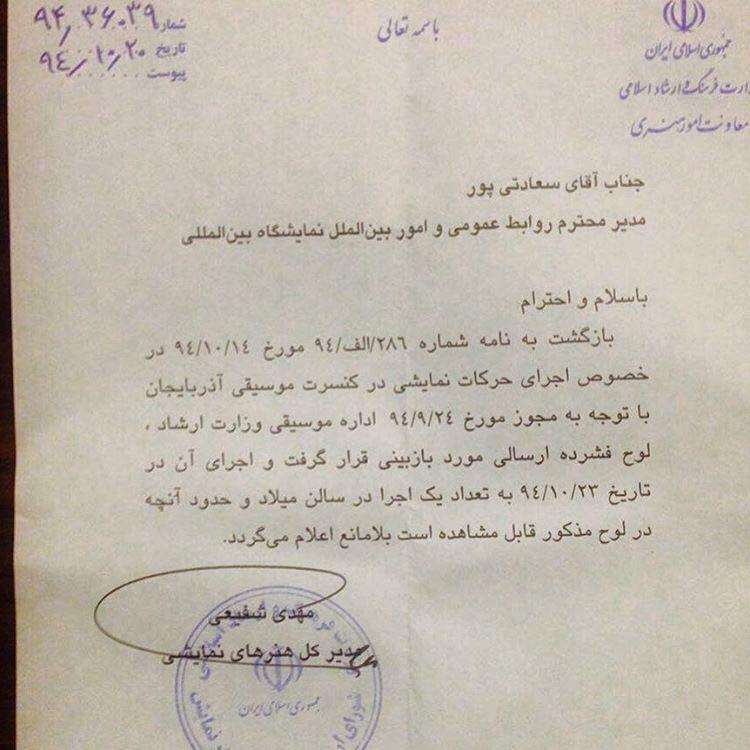 باسمه تعالی
جمهوری اسلامی ایران
وزارت فرهنگ و ارشاد اسلامی
معاونت امور هنری
شماره ۹۴/۳۶۰۳۹
تاریخ ۹۴/۱۰/۲۰
پیوست
جناب آقای سعادتی پور
مدیر محترم روابط عمومی و امور بین‌الملل نمایشگاه بین‌المللی
باسلام و احترام
بازگشت به نامه شماره ۲۸۶/الف/۹۴ مورخ ۹۴/۱۰/۱۴ در
خصوص اجرای حرکات نمایشی در کنسرت موسیقی آذربایجان
با توجه به مجوز مورخ ۹۴/۹/۲۴ اداره موسیقی وزارت ارشاد ،
لوح فشرده ارسالی مورد بازبینی قرار گرفت و اجرای آن در
تاریخ ۹۴/۱۰/۲۳ به تعداد یک اجرا در سالن میلاد و حدود آنچه
در لوح مذکور قابل مشاهده است بلامانع اعلام می‌گردد.
مهدی شفیعی
مدیر کل هنرهای نمایشی
جمهوری اسلامی ایران